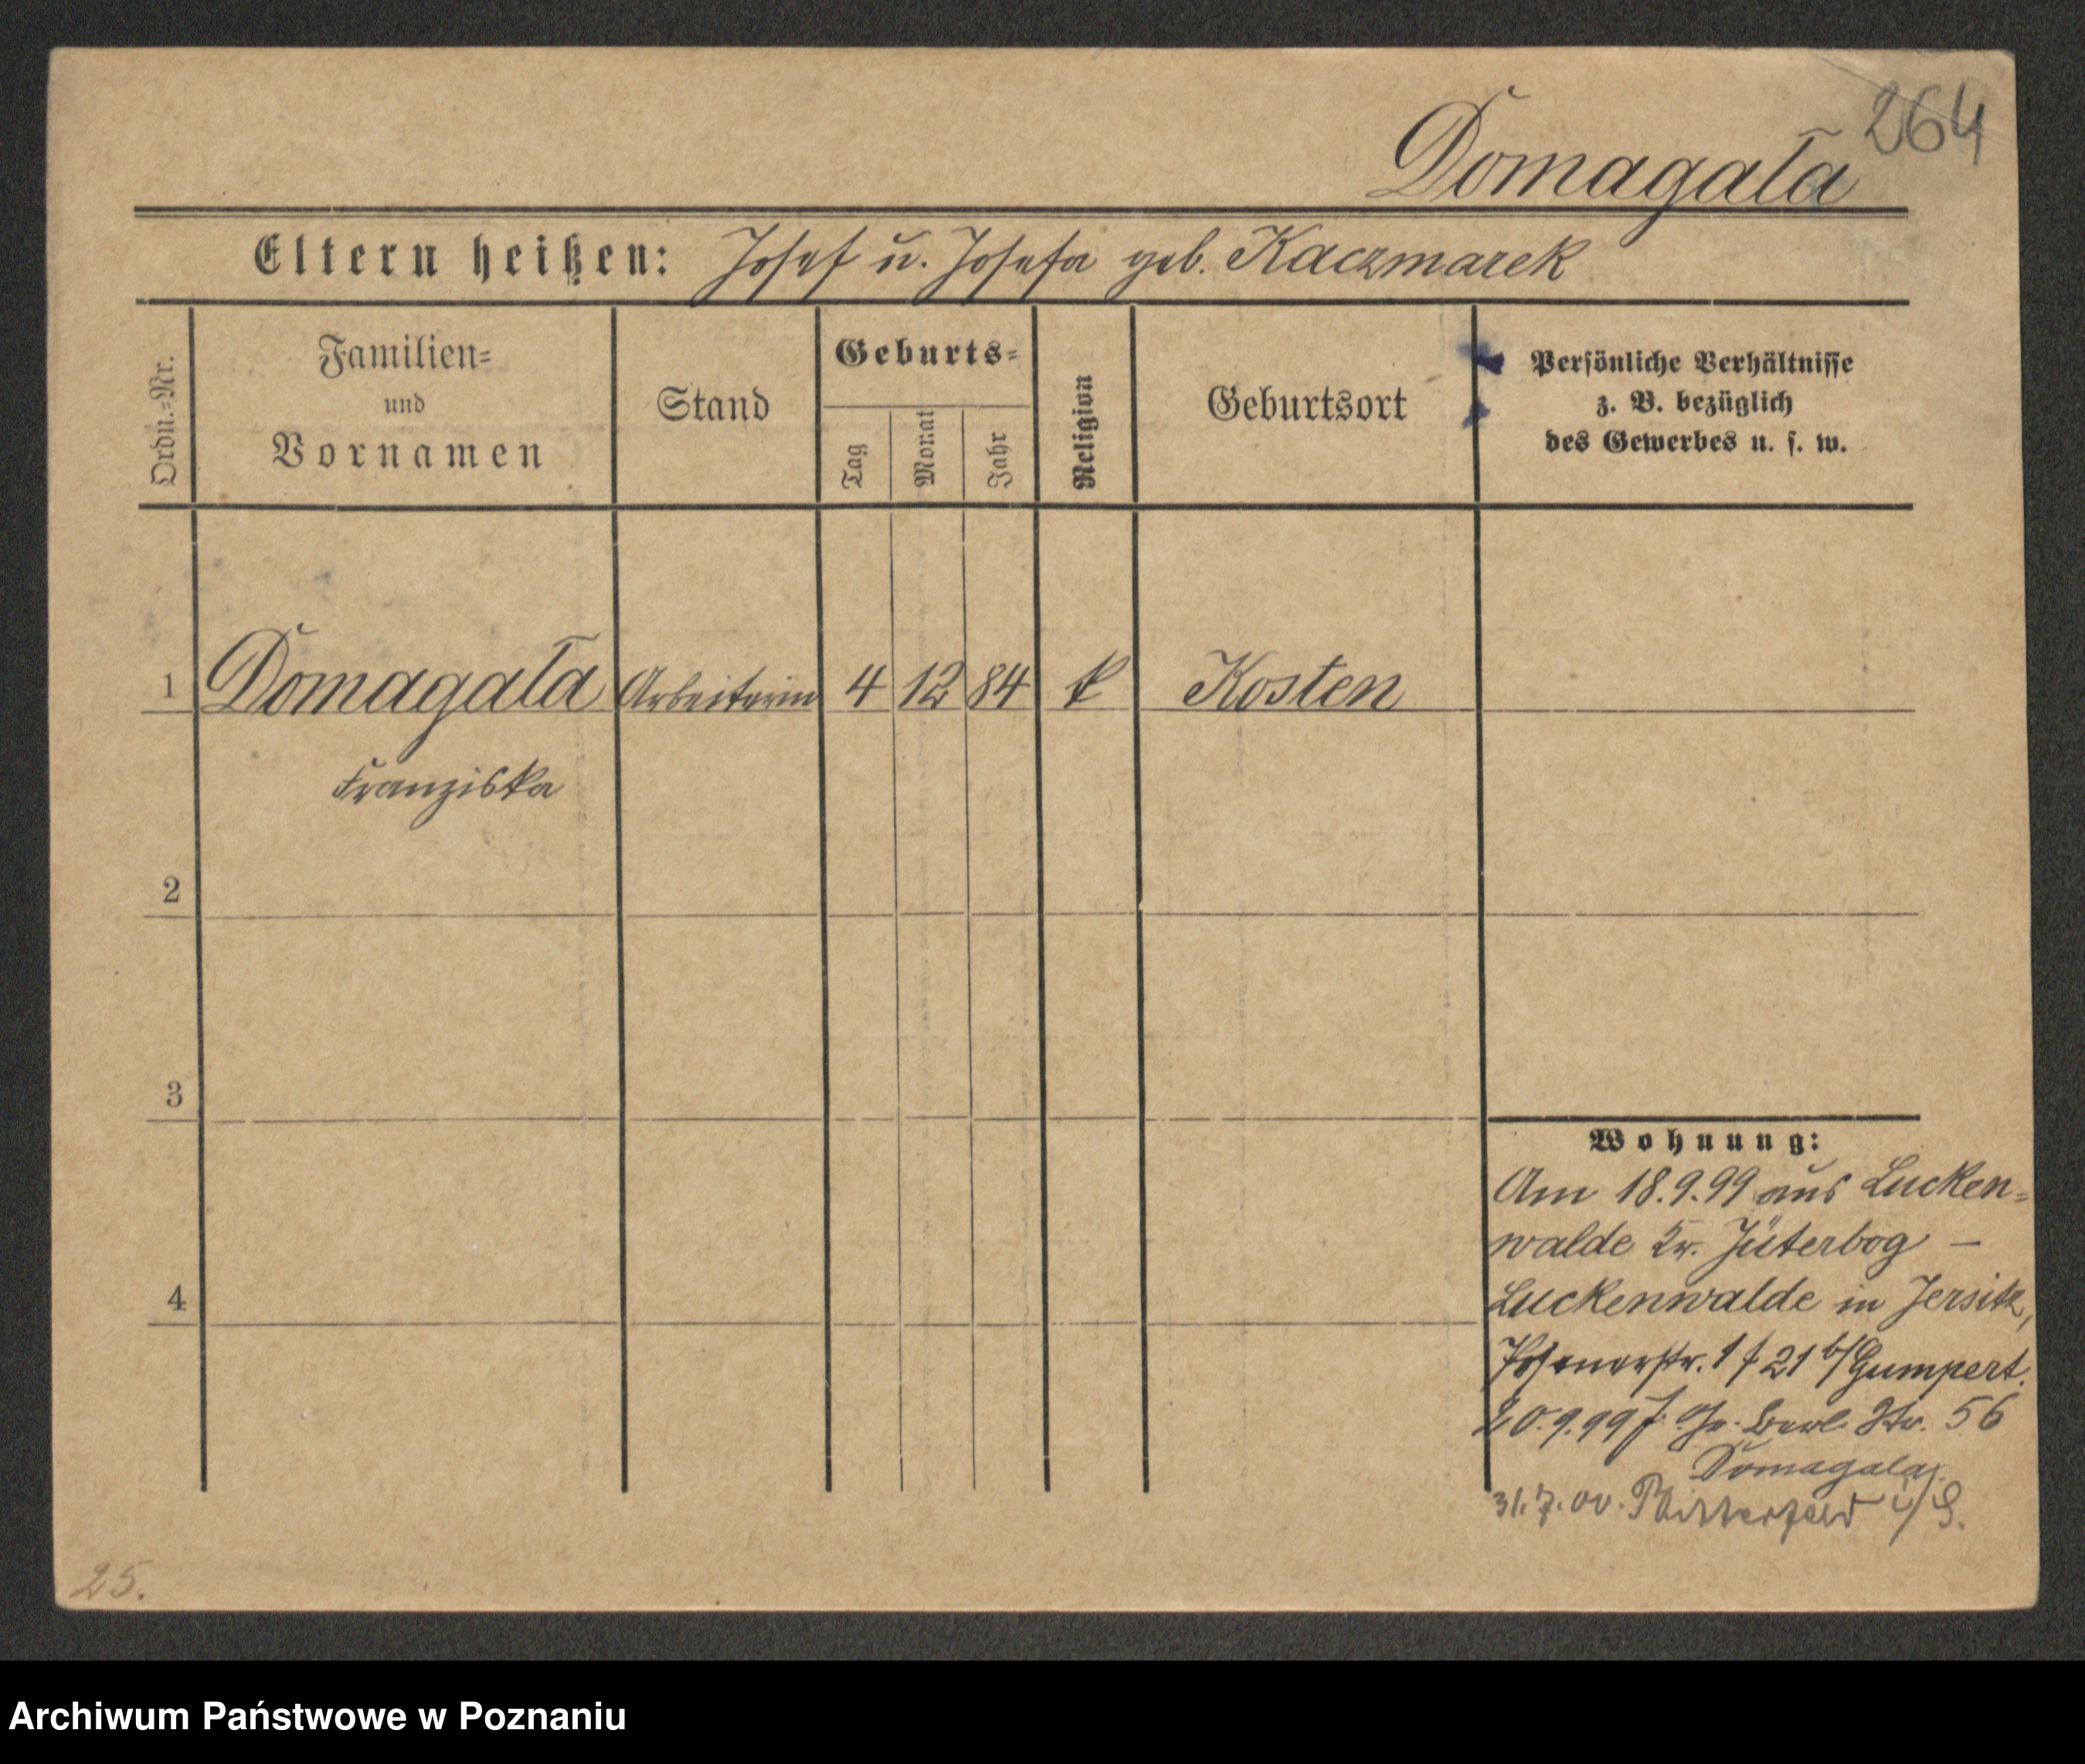 264
Domagała
Eltern heißen: Josef u. Josefa geb. Kaczmarek
Ordn.=Nr.
Familien=
und
Vornamen
Stand
Geburts=
Tag
Monat
Jahr
Religion
Geburtsort
Persönliche Verhältnisse
z. B. bezüglich
des Gewerbes u. s. w.
1 Domagała Arbeiterin 4 12 84 k Kosten
Franziska
2
3
4
Wohnung:
Am 18.9.99 aus Lucken=
walde Kr. Jüterbog –
Luckenwalde in Jersitz,
Posenerstr. 21 b/Gumpert.
20.9.99 Gr. Berl. Str. 56
Domagala
31.7.00. Bitterfeld
25.
Archiwum Państwowe w Poznaniu